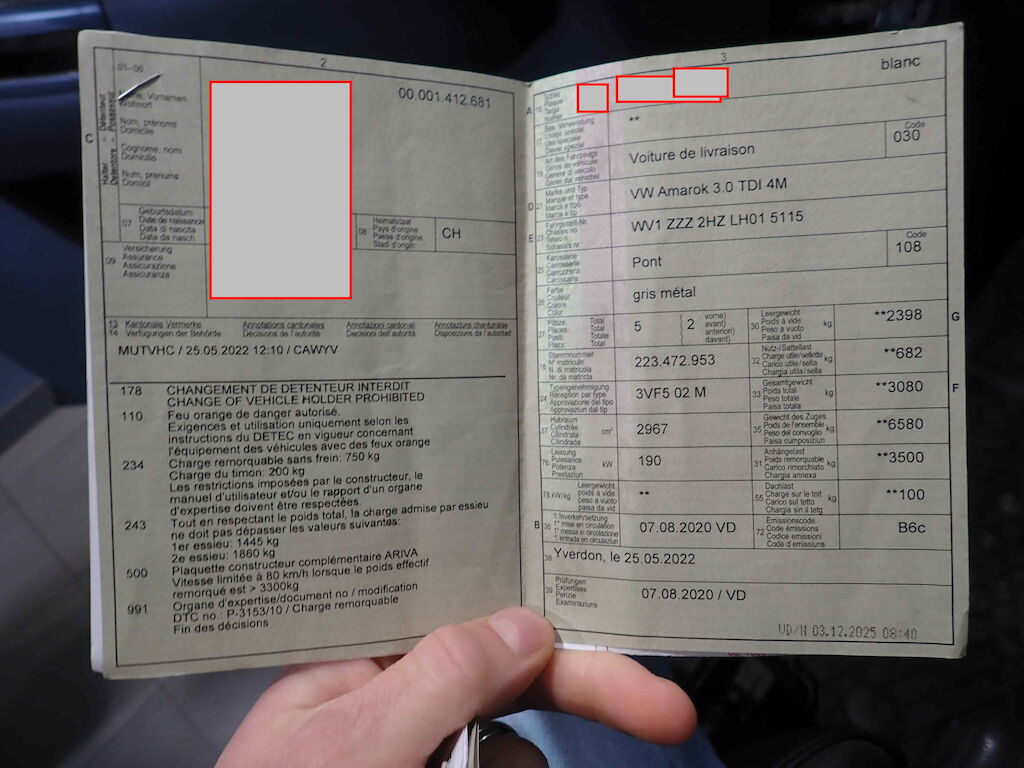 2
01-06
Name, Vornamen
Wohnort
Nom, prénoms
Domicile
Cognome, nomi
Domicilio
Num, prenums
Domicil
C
Halter - Détenteur
Detentore - Possessur
00.001.412.681
07
Geburtsdatum
Date de naissance
Data di nascita
Data da nasch.
08
Heimatstaat
Pays d'origine
Paese d'origine
Stadi d'origin
CH
09
Versicherung
Assurance
Assicurazione
Assicuranza
13
14
Kantonale Vermerke
Verfügungen der Behörde
Annotations cantonales
Décisions de l'autorité
Annotazioni cantonali
Decisioni dell'autorità
Annotaziuns chantunalas
Disposiziuns da l'autoritad
MUTVHC / 25.05.2022 12:10 / CAWYV
178 CHANGEMENT DE DETENTEUR INTERDIT
CHANGE OF VEHICLE HOLDER PROHIBITED
110 Feu orange de danger autorisé.
Exigences et utilisation uniquement selon les
instructions du DETEC en vigueur concernant
l'équipement des véhicules avec des feux orange
234 Charge remorquable sans frein: 750 kg
Charge du timon: 200 kg
Les restrictions imposées par le constructeur, le
manuel d'utilisateur et/ou le rapport d'un organe
d'expertise doivent être respectées.
243 Tout en respectant le poids total, la charge admise par essieu
ne doit pas dépasser les valeurs suivantes:
1er essieu: 1445 kg
2e essieu: 1860 kg
500 Plaquette constructeur complémentaire ARIVA
Vitesse limitée à 80 km/h lorsque le poids effectif
remorqué est > 3300kg
991 Organe d'expertise/document no / modification
DTC no.: P-3153/10 / Charge remorquable
Fin des décisions
3
A
15
Schild
Plaque
Targa
Numer
blanc
17
Bes. Verwendung
Usage spécial
Uso speciale
Diever spezial
**
19
Art des Fahrzeugs
Genre de véhicule
Genere di veicolo
Gener dal vehichel
Voiture de livraison
Code
030
D
21
Marke und Typ
Marque et type
Marca e tipo
Marca e tip
VW Amarok 3.0 TDI 4M
E
23
Fahrgestell-Nr.
Châssis no
Telaio n.
Schassis nr.
WV1 ZZZ 2HZ LH01 5115
25
Karosserie
Carrosserie
Carrozzeria
Carossaria
Pont
Code
108
26
Farbe
Couleur
Colore
Colur
gris métal
27
Plätze: Total
Places: Total
Posti: Totale
Plazs: Total
5 ( 2
vorne)
avant)
anteriori)
davant)
30
Leergewicht
Poids à vide
Peso a vuoto
Paisa da vid
kg
**2398
G
18
Stammnummer
N° matricule
N. di matricola
Nr. da matricla
223.472.953
32
Nutz-/Sattellast
Charge utile/sellette
Carico utile/sella
Chargia utila/sella
kg
**682
24
Typengenehmigung
Réception par type
Approvazione del tipo
Approvaziun dal tip
3VF5 02 M
33
Gesamtgewicht
Poids total
Peso totale
Paisa totala
kg
**3080
F
37
Hubraum
Cylindrée
Cilindrata
Cilindrada
cm³
2967
35
Gewicht des Zuges
Poids de l'ensemble
Peso del convoglio
Paisa cumposiziun
kg
**6580
76
Leistung
Puissance
Potenza
Prestaziun
kW
190
31
Anhängelast
Poids remorquable
Carico rimorchiato
Chargia annexa
kg
**3500
78 kW/kg
Leergewicht
poids à vide
peso a vuoto
paisa da vid
**
55
Dachlast
Charge sur le toit
Carico sul tetto
Chargia sin il tetg
kg
**100
B
36
1. Inverkehrsetzung
1re mise en circulation
1a messa in circolazione
1. entrada en circulaziun
07.08.2020 VD
72
Emissionscode
Code émissions
Codice emissioni
Code d'emissiuns
B6c
38
Yverdon, le 25.05.2022
39
Prüfungen
Expertises
Perizie
Examinaziuns
07.08.2020 / VD
VD/N 03.12.2025 08:40